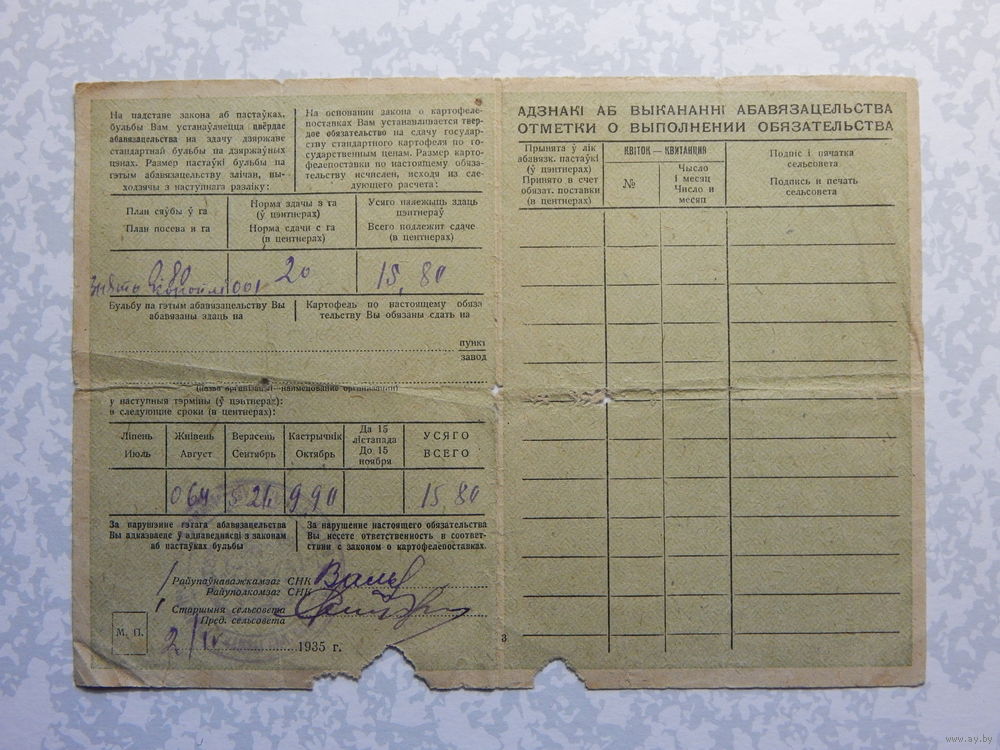 На падставе закона аб пастаўках,
бульбы Вам устанаўляецца цвёрдае
абавязацельства на здачу дзяржаве
стандартнай бульбы па дзяржаўных
цэнах. Размер пастаўкі бульбы па
гэтым абавязацельстве злічан, вы-
ходзячы з наступнага разліку:
На основании закона о картофеле-
поставках Вам устанавливается твер-
дое обязательство на сдачу государ-
ству стандартного картофеля по го-
сударственным ценам. Размер карто-
фелепоставки по настоящему обяза-
тельству исчислен, исходя из сле-
дующего расчета:
План сяўбы ў га
План посева в га
Норма здачы з га
(ў цэнтнерах)
Норма сдачи с га
(в центнерах)
Усяго належыць здаць
цэнтнераў
Всего подлежит сдаче
(в центнерах)
20
15,80
Бульбу па гэтым абавязацельству Вы
абавязаны здаць на
Картофель по настоящему обяза
тельству Вы обязаны сдать на
пункт
завод
(назва арганізацыі—наименование организации)
у наступныя тэрміны (ў цэнтнерах):
в следующие сроки (в центнерах):
Ліпень
Июль
Жнівень
Август
Верасень
Сентябрь
Кастрычнік
Октябрь
Да 15
лістапада
До 15
ноября
УСЯГО
ВСЕГО
064 9,90 15,80
За парушэнне гэтага абавязацельства
Вы адказваеце ў адпаведнасці з законам
аб пастаўках бульбы
За нарушение настоящего обязательства
Вы несете ответственность в соответ-
ствии с законом о картофелепоставках.
Райупаўнаважкамзаг СНК
Райуполкомзаг СНК
Старшыня сельсовета
Пред. сельсовета
М. П.
2/IV 1935 г.
3
АДЗНАКІ АБ ВЫКАНАННІ АБАВЯЗАЦЕЛЬСТВА
ОТМЕТКИ О ВЫПОЛНЕНИИ ОБЯЗАТЕЛЬСТВА
Прынята ў лік
абавязк. пастаўкі
(ў цэнтнерах)
Принято в счет
обязат. поставки
(в центнерах)
КВІТОК — КВИТАНЦИЯ
№
Чысло
і месяц
Число и
месяц
Подпіс і пячатка
сельсовета
Подпись и печать
сельсовета
www.ay.by